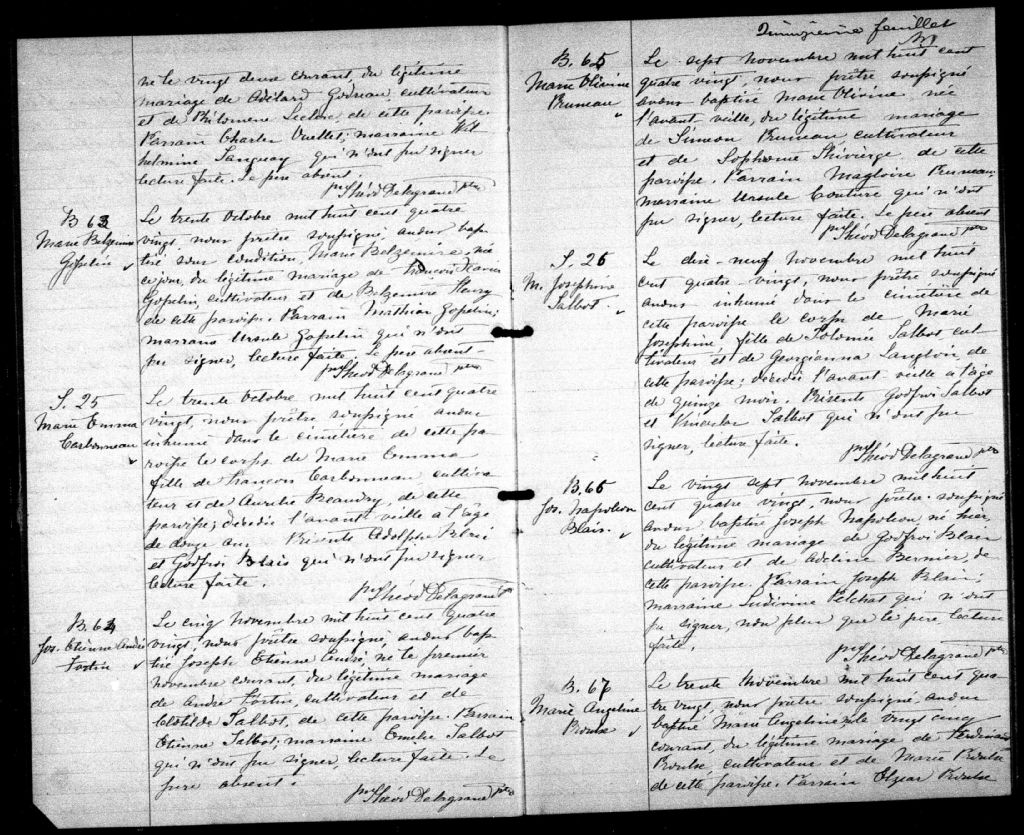 né le vingt deux courant, du légitime
mariage de Adélard Godreau, cultivateur
et de Philomène Leclerc, de cette paroisse.
Parrain Charles Ouellet; marraine Wil
helmine Tanguay qui n'ont pu signer
lecture faite. Le père absent.
Théod Delagrave ptre
B 63
Marie Belzemire
Gosselin
Le trente Octobre mil huit cent quatre
vingt, nous prêtre soussigné avons bap
tisé sous condition, Marie Belzemire, née
ce jour, du légitime mariage de François Xavier
Gosselin, cultivateur et de Belzemire Fleury
de cette paroisse. Parrain Mathias Gosselin;
marraine Ursule Gosselin qui n'ont
pu signer, lecture faite. Le père absent
Théod Delagrave ptre
S. 25
Marie Emma
Carbonneau
Le trente Octobre mil huit cent quatre
vingt, nous prêtre soussigné avons
inhumé dans le cimetière de cette pa
roisse le corps de Marie Emma
fille de François Carbonneau cultiva
teur et de Aurélie Beaudry, de cette
paroisse; décédée l'avant veille à l'age
de douze ans. Présents Adolphe
et Godfroi Blais qui n'ont pu signer
lecture faite.
Théod Delagrave ptre
B. 64
Jos. Etienne André
Fortin
Le cinq Novembre mil huit cent quatre
vingt, nous prêtre soussigné, avons bap
tisé Joseph Etienne André, né le premier
novembre courant, du légitime mariage
de André Fortin, cultivateur et de
Clotilde Talbot, de cette paroisse. Parrain
Etienne Talbot; marraine Emélie Talbot
qui n'ont pu signer, lecture faite. Le
père absent.
Théod Delagrave ptre
Quinzième feuillet
B. 65
Marie Olivine
Pruneau
Le sept novembre mil huit cent
quatre vingt, nous prêtre soussigné
avons baptisé Marie Olivine née
l'avant veille, du légitime mariage
de Siméon Pruneau cultivateur
et de Sophronie Thivierge de cette
paroisse. Parrain Magloire Pruneau
marraine Ursule Couture qui n'ont
pu signer, lecture faite. Le père absent
Théod Delagrave ptre
S. 26
M. Josephine
Talbot
Le dix-neuf novembre mil huit
cent quatre-vingt, nous prêtre soussigné
avons inhumé dans le cimetière de
cette paroisse le corps de Marie
Josephine, fille de Salomée Talbot cul
tivateur et de Georgianna Langlois de
cette paroisse; décédée l'avant-veille à l'age
de quinze mois. Présents Godfroi Talbot
et Talbot qui n'ont pu
signer, lecture faite.
Théod Delagrave ptre
B. 66
Jos. Napoléon
Blais
Le vingt sept novembre mil huit
cent quatre vingt, nous prêtre soussigné
avons baptisé Joseph Napoléon né hier,
du légitime mariage de Godfroi Blais
cultivateur et de Adeline Bernier, de
cette paroisse. Parrain Joseph Blais;
marraine Ludivine Pelchat qui n'ont
pu signer, non plus que le père, lecture
faite.
Théod Delagrave ptre
B. 67
Marie Angeline
Proulx
Le trente Novembre mil huit cent qua
tre vingt, nous prêtre soussigné, avons
baptisé Marie Angeline, née le vingt cinq
courant, du légitime mariage de Ferdinand
Proulx cultivateur et de Marie Proulx
de cette paroisse. Parrain Elzear Proulx